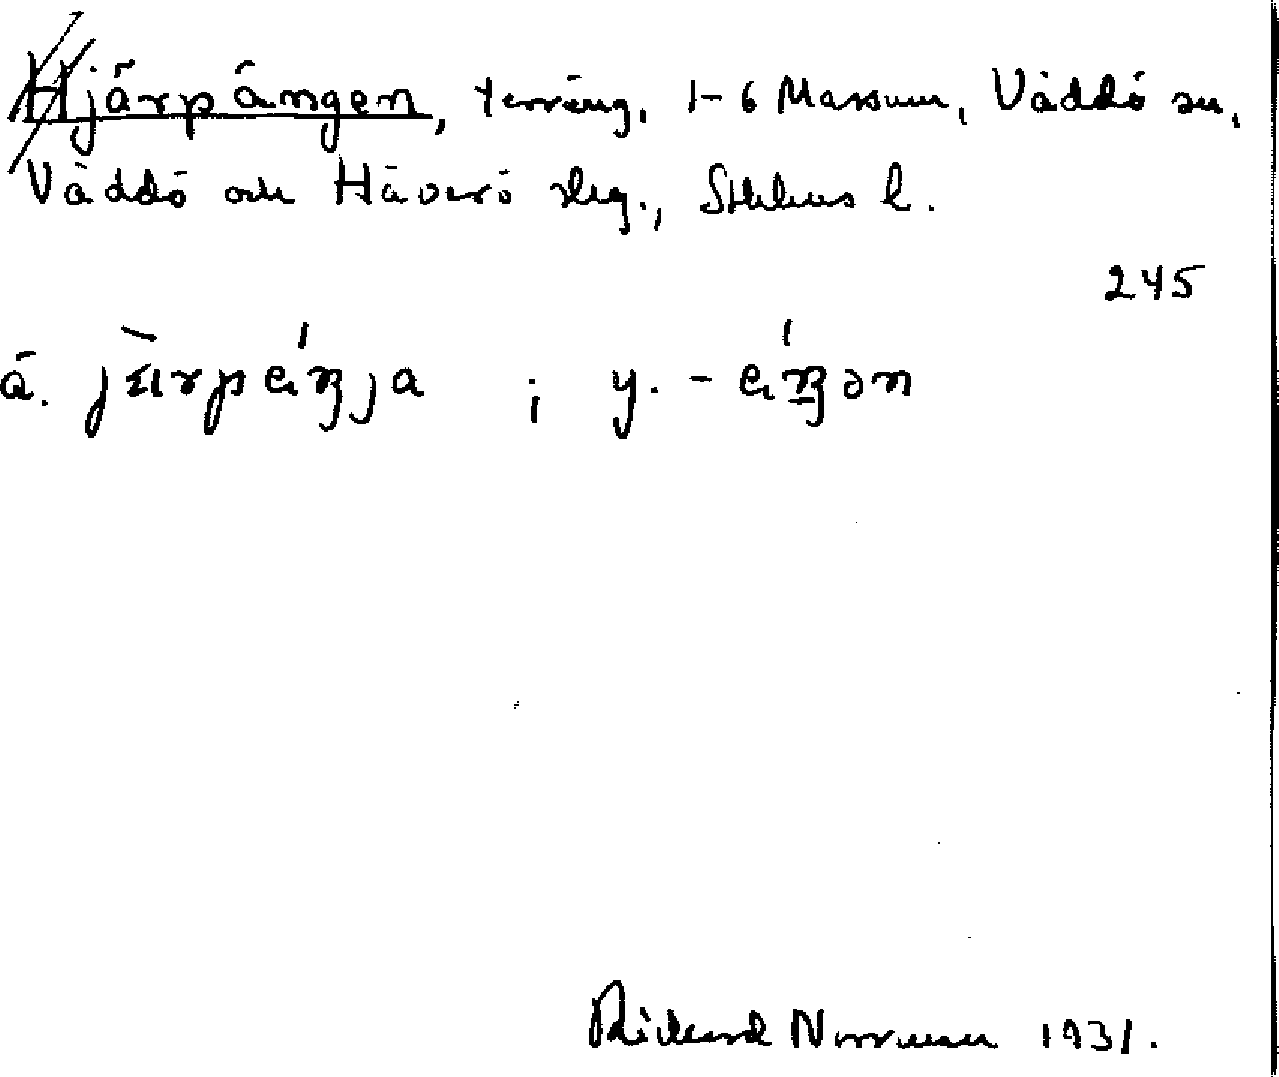 Hjärpängen, terräng, 1-6 Massum, Väddö sn,
Väddö och Häverö skg., Sthlms l.
245
ä. järpäŋja ; y. -äŋən
Rickard Norrman 1931.